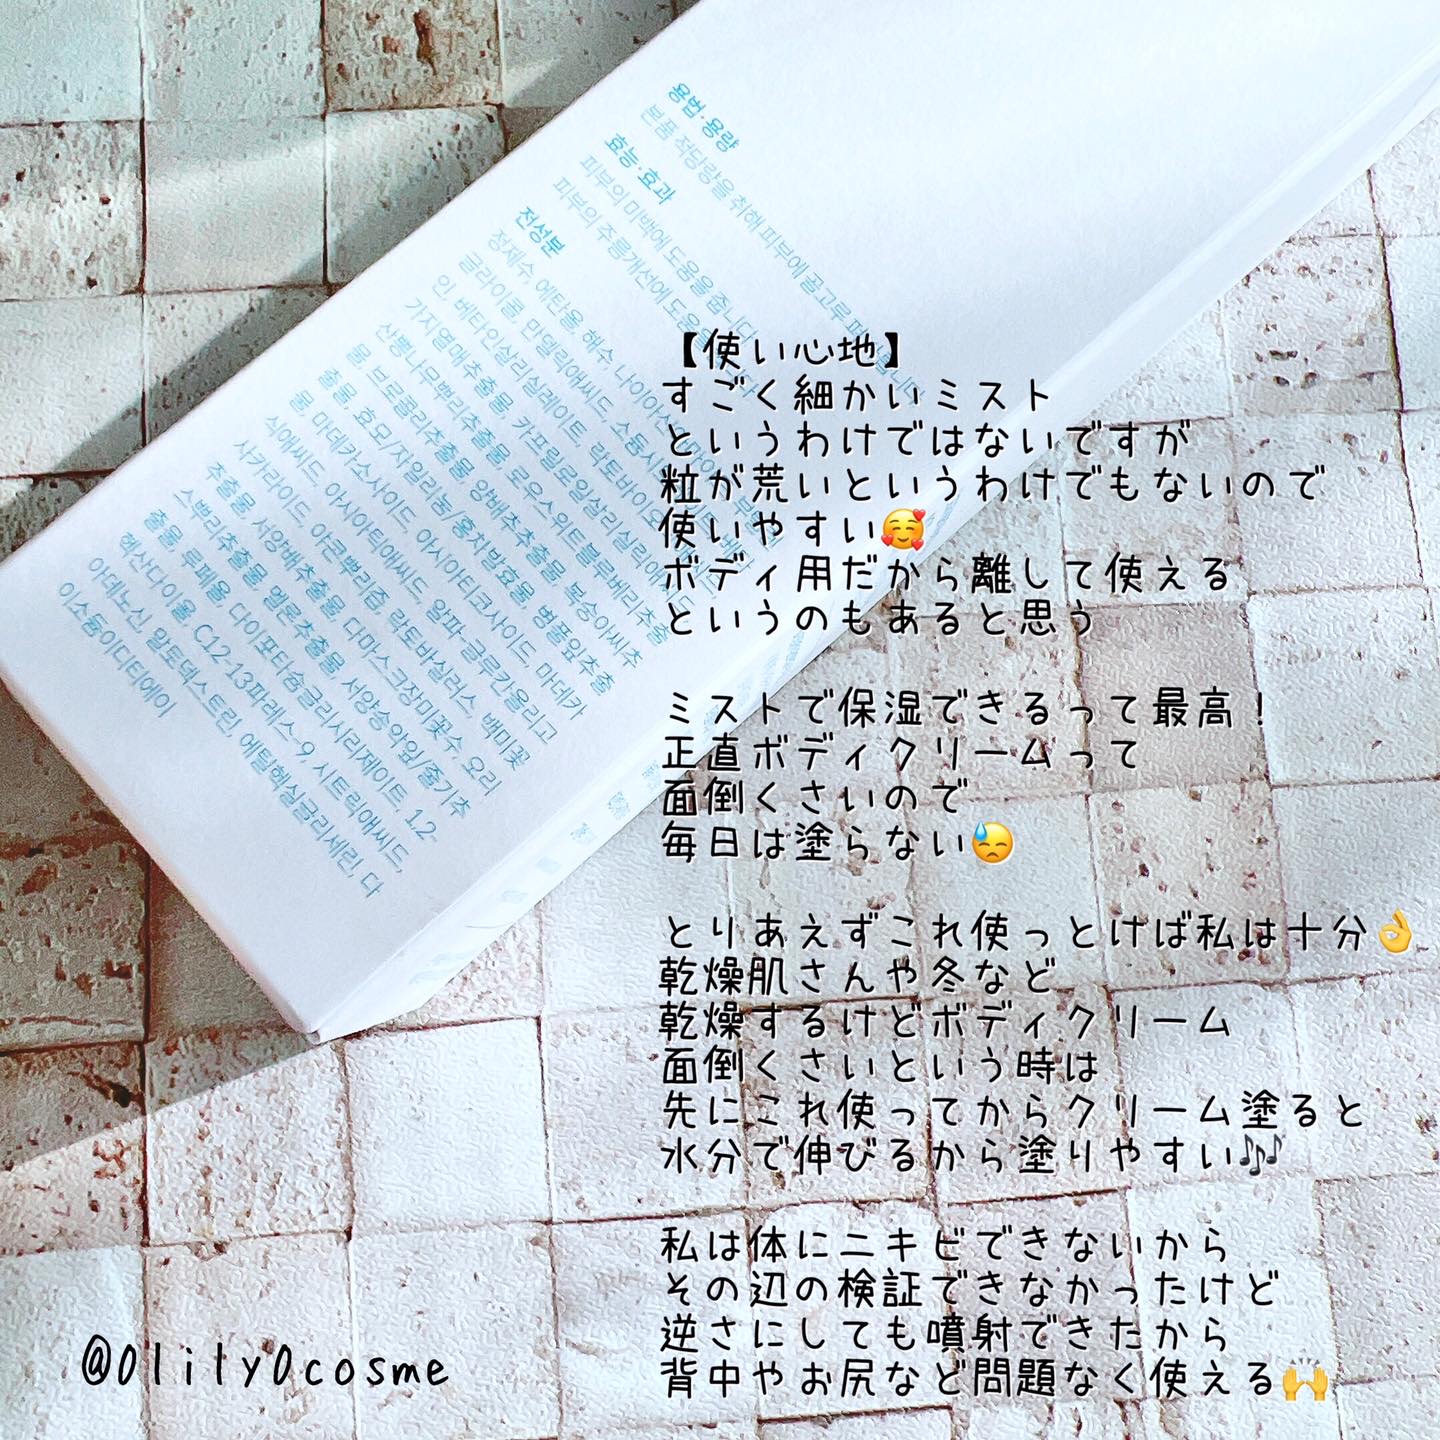 용법·용량
본품 적당량을 취해 피부에 골고루
효능·효과
피부의 미백에 도움을 줍니다
피부의 주름개선에 도움을
전성분
정제수, 에탄올, 해수,
글라이콜, 만델릭애씨드, 소듐시
인, 베타인살리실레이트, 락토바이오
가지열매추출물, 카프릴로일살리실릭애
산뽕나무뿌리추출물, 로우스위트블루베리추출
물, 브로콜리추출물, 양배추추출물, 복숭아씨추
출물, 효모/자일리눔/홍차발효물, 병풀잎추출
물, 마데카소사이드, 아시아티코사이드, 마데카
식애씨드, 아시아틱애씨드, 알파-글루칸올리고
사카라이드, 야콘뿌리즙, 락토바실러스, 백미꽃
추출물, 서양배추출물, 다마스크장미꽃수, 오리
스뿌리추출물, 멜론추출물, 서양송악잎/줄기추
출물, 루페올, 다이포타슘글리시리제이트, 1,2-
헥산다이올, C12-13파레스-9, 시트릭애씨드,
아데노신, 말토덱스트린, 에틸헥실글리세린, 다
이소듐이디티에이
【使い心地】
すごく細かいミスト
というわけではないですが
粒が荒いというわけでもないので
使いやすい🥰
ボディ用だから離して使える
というのもあると思う
ミストで保湿できるって最高！
正直ボディクリームって
面倒くさいので
毎日は塗らない😓
とりあえずこれ使っとけば私は十分👌
乾燥肌さんや冬など
乾燥するけどボディクリーム
面倒くさいという時は
先にこれ使ってからクリーム塗ると
水分で伸びるから塗りやすい🎶
私は体にニキビできないから
その辺の検証できなかったけど
逆さにしても噴射できたから
背中やお尻など問題なく使える🙌
@0lily0cosme